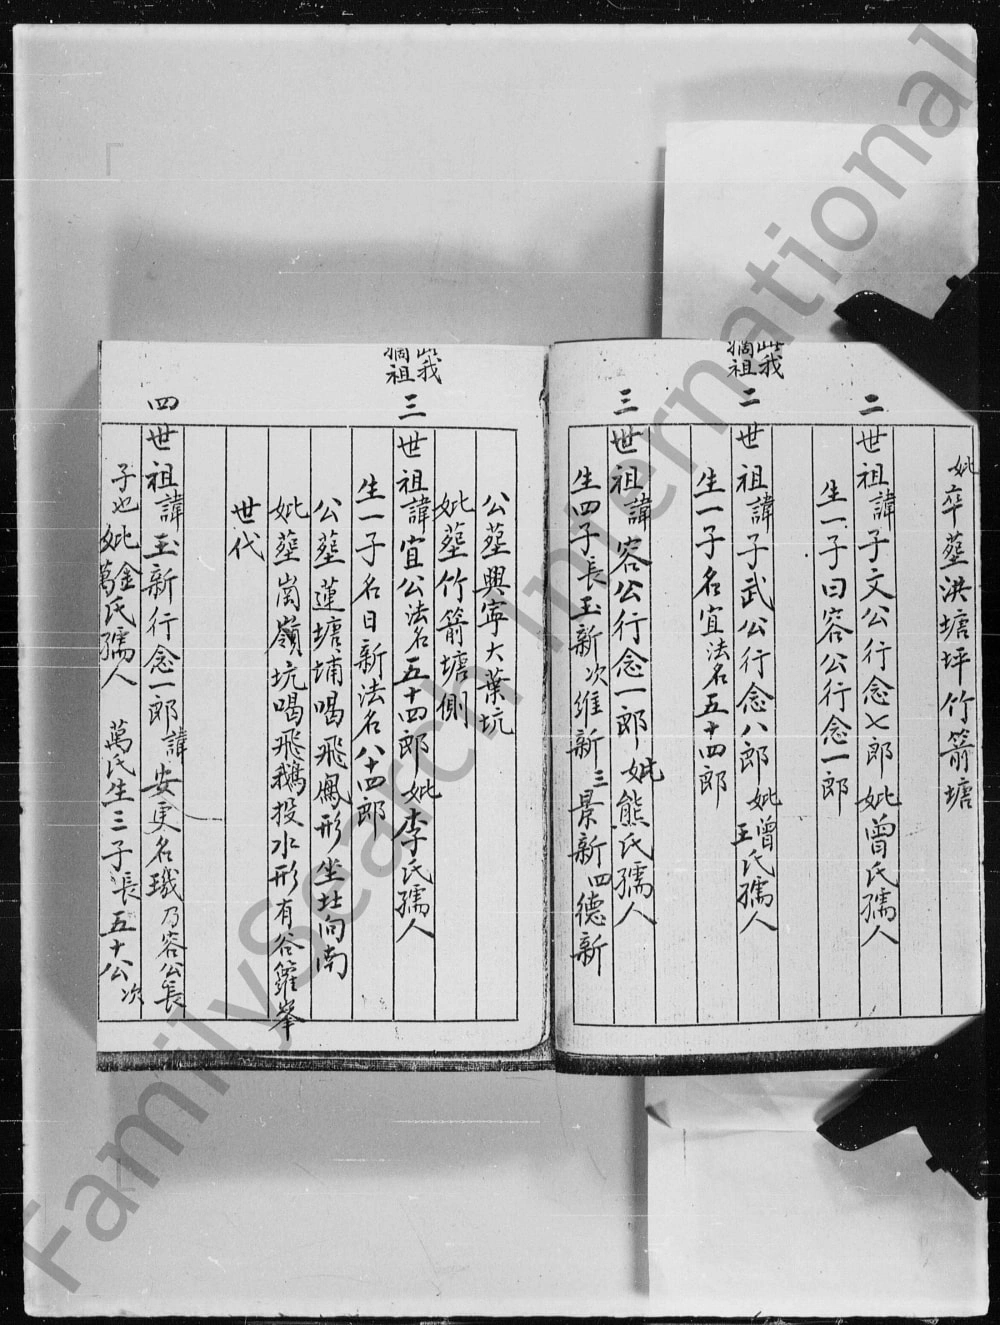 妣卒塟洪塘坪竹箭塘
二世祖諱子文公行念七郎妣曾氏孺人
生一子曰容公行念一郎
此我
祖
二世祖諱子武公行念八郎妣曾王氏孺人
生一子名宜法名五十四郎
三世祖諱容公行念一郎妣熊氏孺人
生四子長玉新次维新三景新四德新
公塟興寧大葉坑
妣塟竹箭塘側
此我
祖
三世祖諱宜公法名五十四郎妣李氏孺人
生一子名日新法名八十四郎
公塟蓮塘埔喝飛鳳形坐北向南
妣塟崗嶺坑喝飛鵝投水形有谷籮峯
世代
四世祖諱玉新行念一郎諱安更名璣乃容公長
子也妣金萬氏孺人 萬氏生三子長五十公次
FamilySearch International